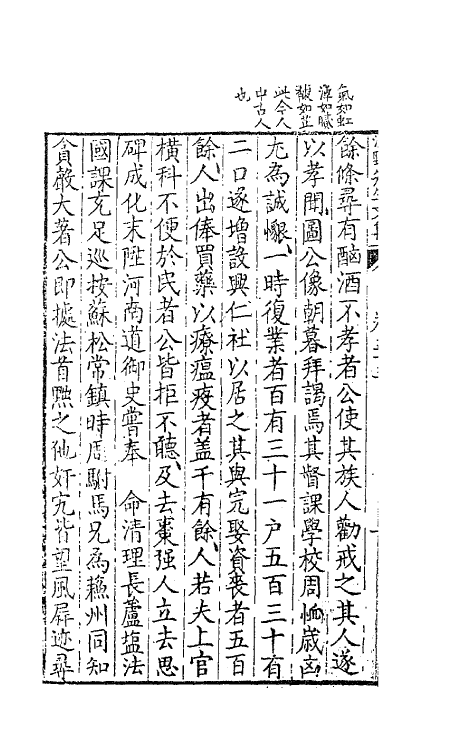 氣如虹
淳如醲
馥如芷
此今人
中古人
也
餘條尋有酗酒不孝者公使其族人勸戒之其人遂
以孝聞圖公像朝暮拜謁焉其督課學校周恤歲凶
尤為誠懇一時復業者百有三十一户五百三十有
二口遂增設興仁社以居之其與完娶資喪者五百
餘人出俸買藥以療瘟疫者蓋千有餘人若夫上官
橫科不便於民者公皆拒不聽及去棗强人立去思
碑成化末陞河南道御史嘗奉　命清理長蘆塩法
國課充足巡按蘇松常鎮時周駙馬兄為蘓州同知
貪敝大著公即據法首黜之他奸宄皆望風屏迹尋